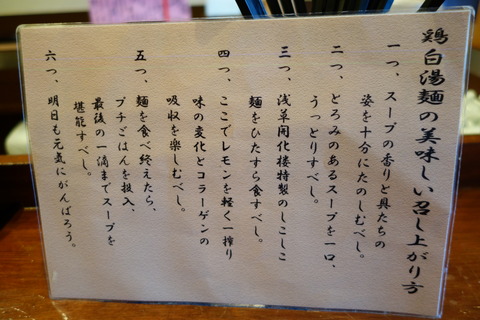 鶏白湯麺の美味しい召し上がり方
一つ、スープの香りと具たちの
姿を十分にたのしむべし。
二つ、とろみのあるスープを一口、
うっとりすべし。
三つ、浅草開化楼特製のしこしこ
麺をひたすら食すべし。
四つ、ここでレモンを軽く一搾り
味の変化とコラーゲンの
吸収を楽しむべし。
五つ、麺を食べ終えたら、
プチごはんを投入、
最後の一滴までスープを
堪能すべし。
六つ、明日も元気にがんばろう。